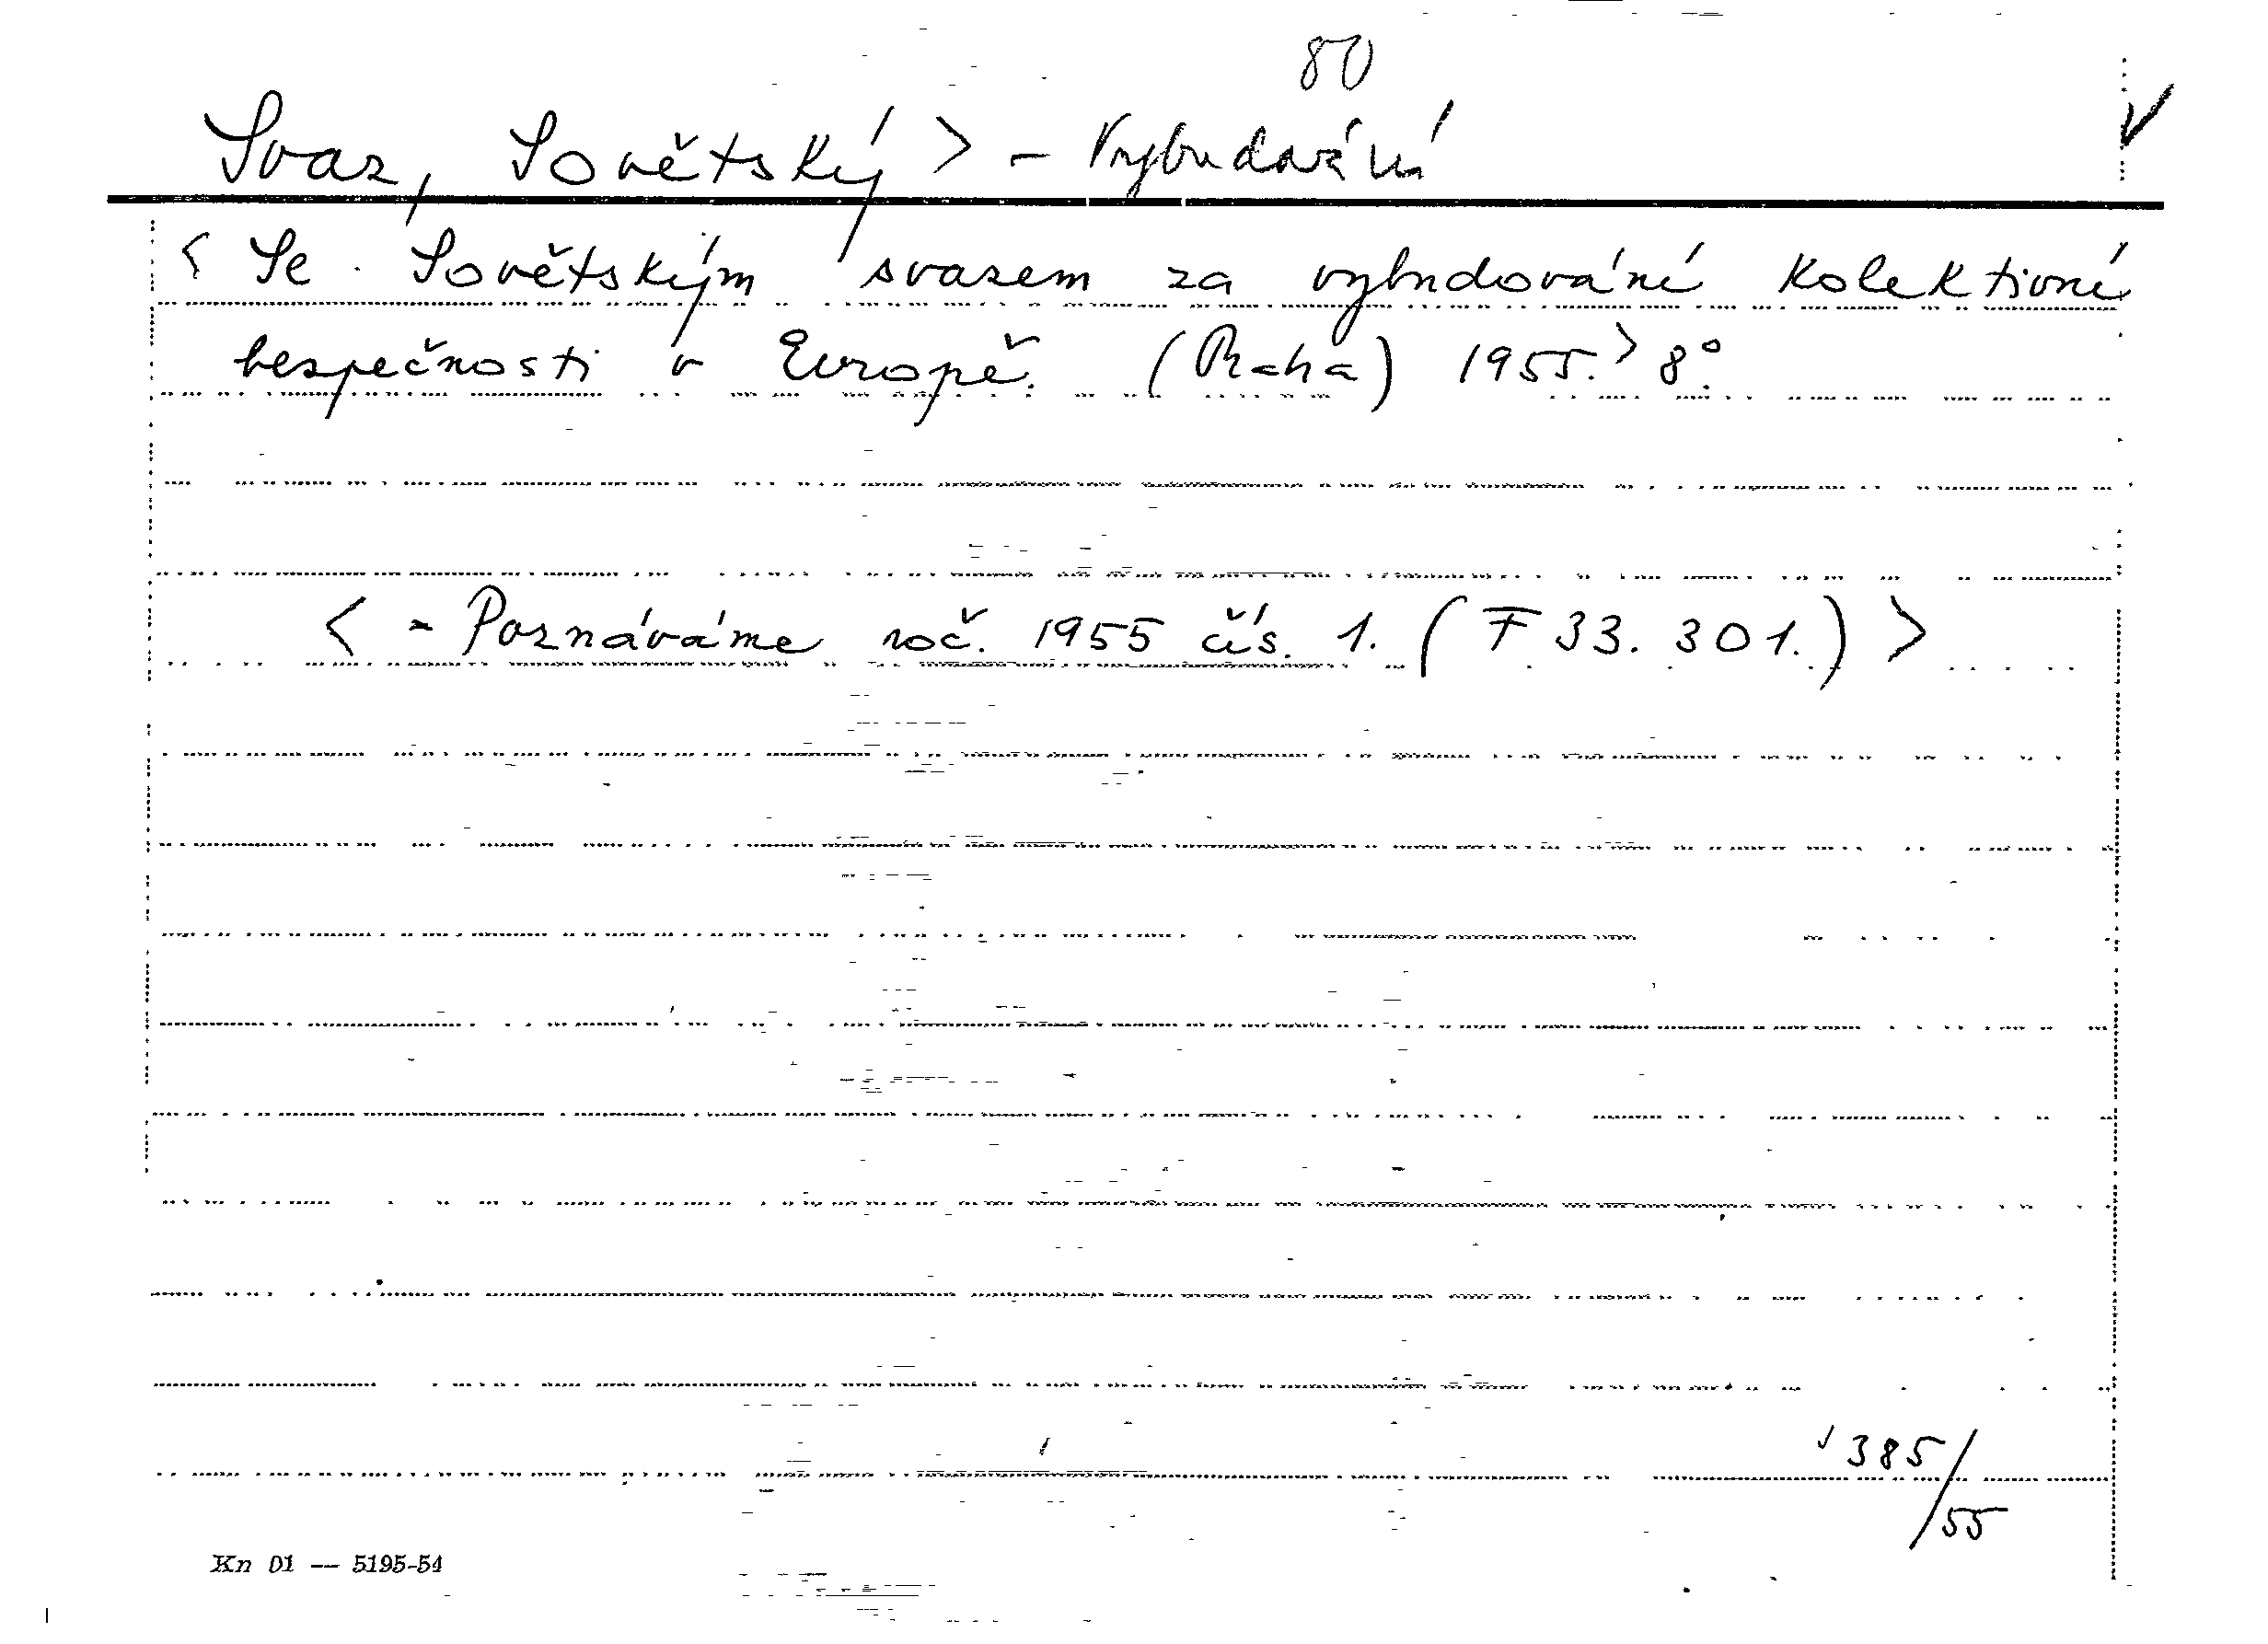 80
Svaz, Sovětský > - Vybudování
< Se Sovětským svazem za vybudování kolektivní
bezpečnosti v Evropě. (Praha) 1955.> 8°.
< - Poznáváme roč. 1955 čís. 1. (F 33.301.) >
385/55
Kn 01 — 5195-54